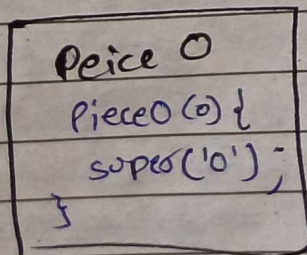 Peice O
PieceO (o) {
super('O');
}